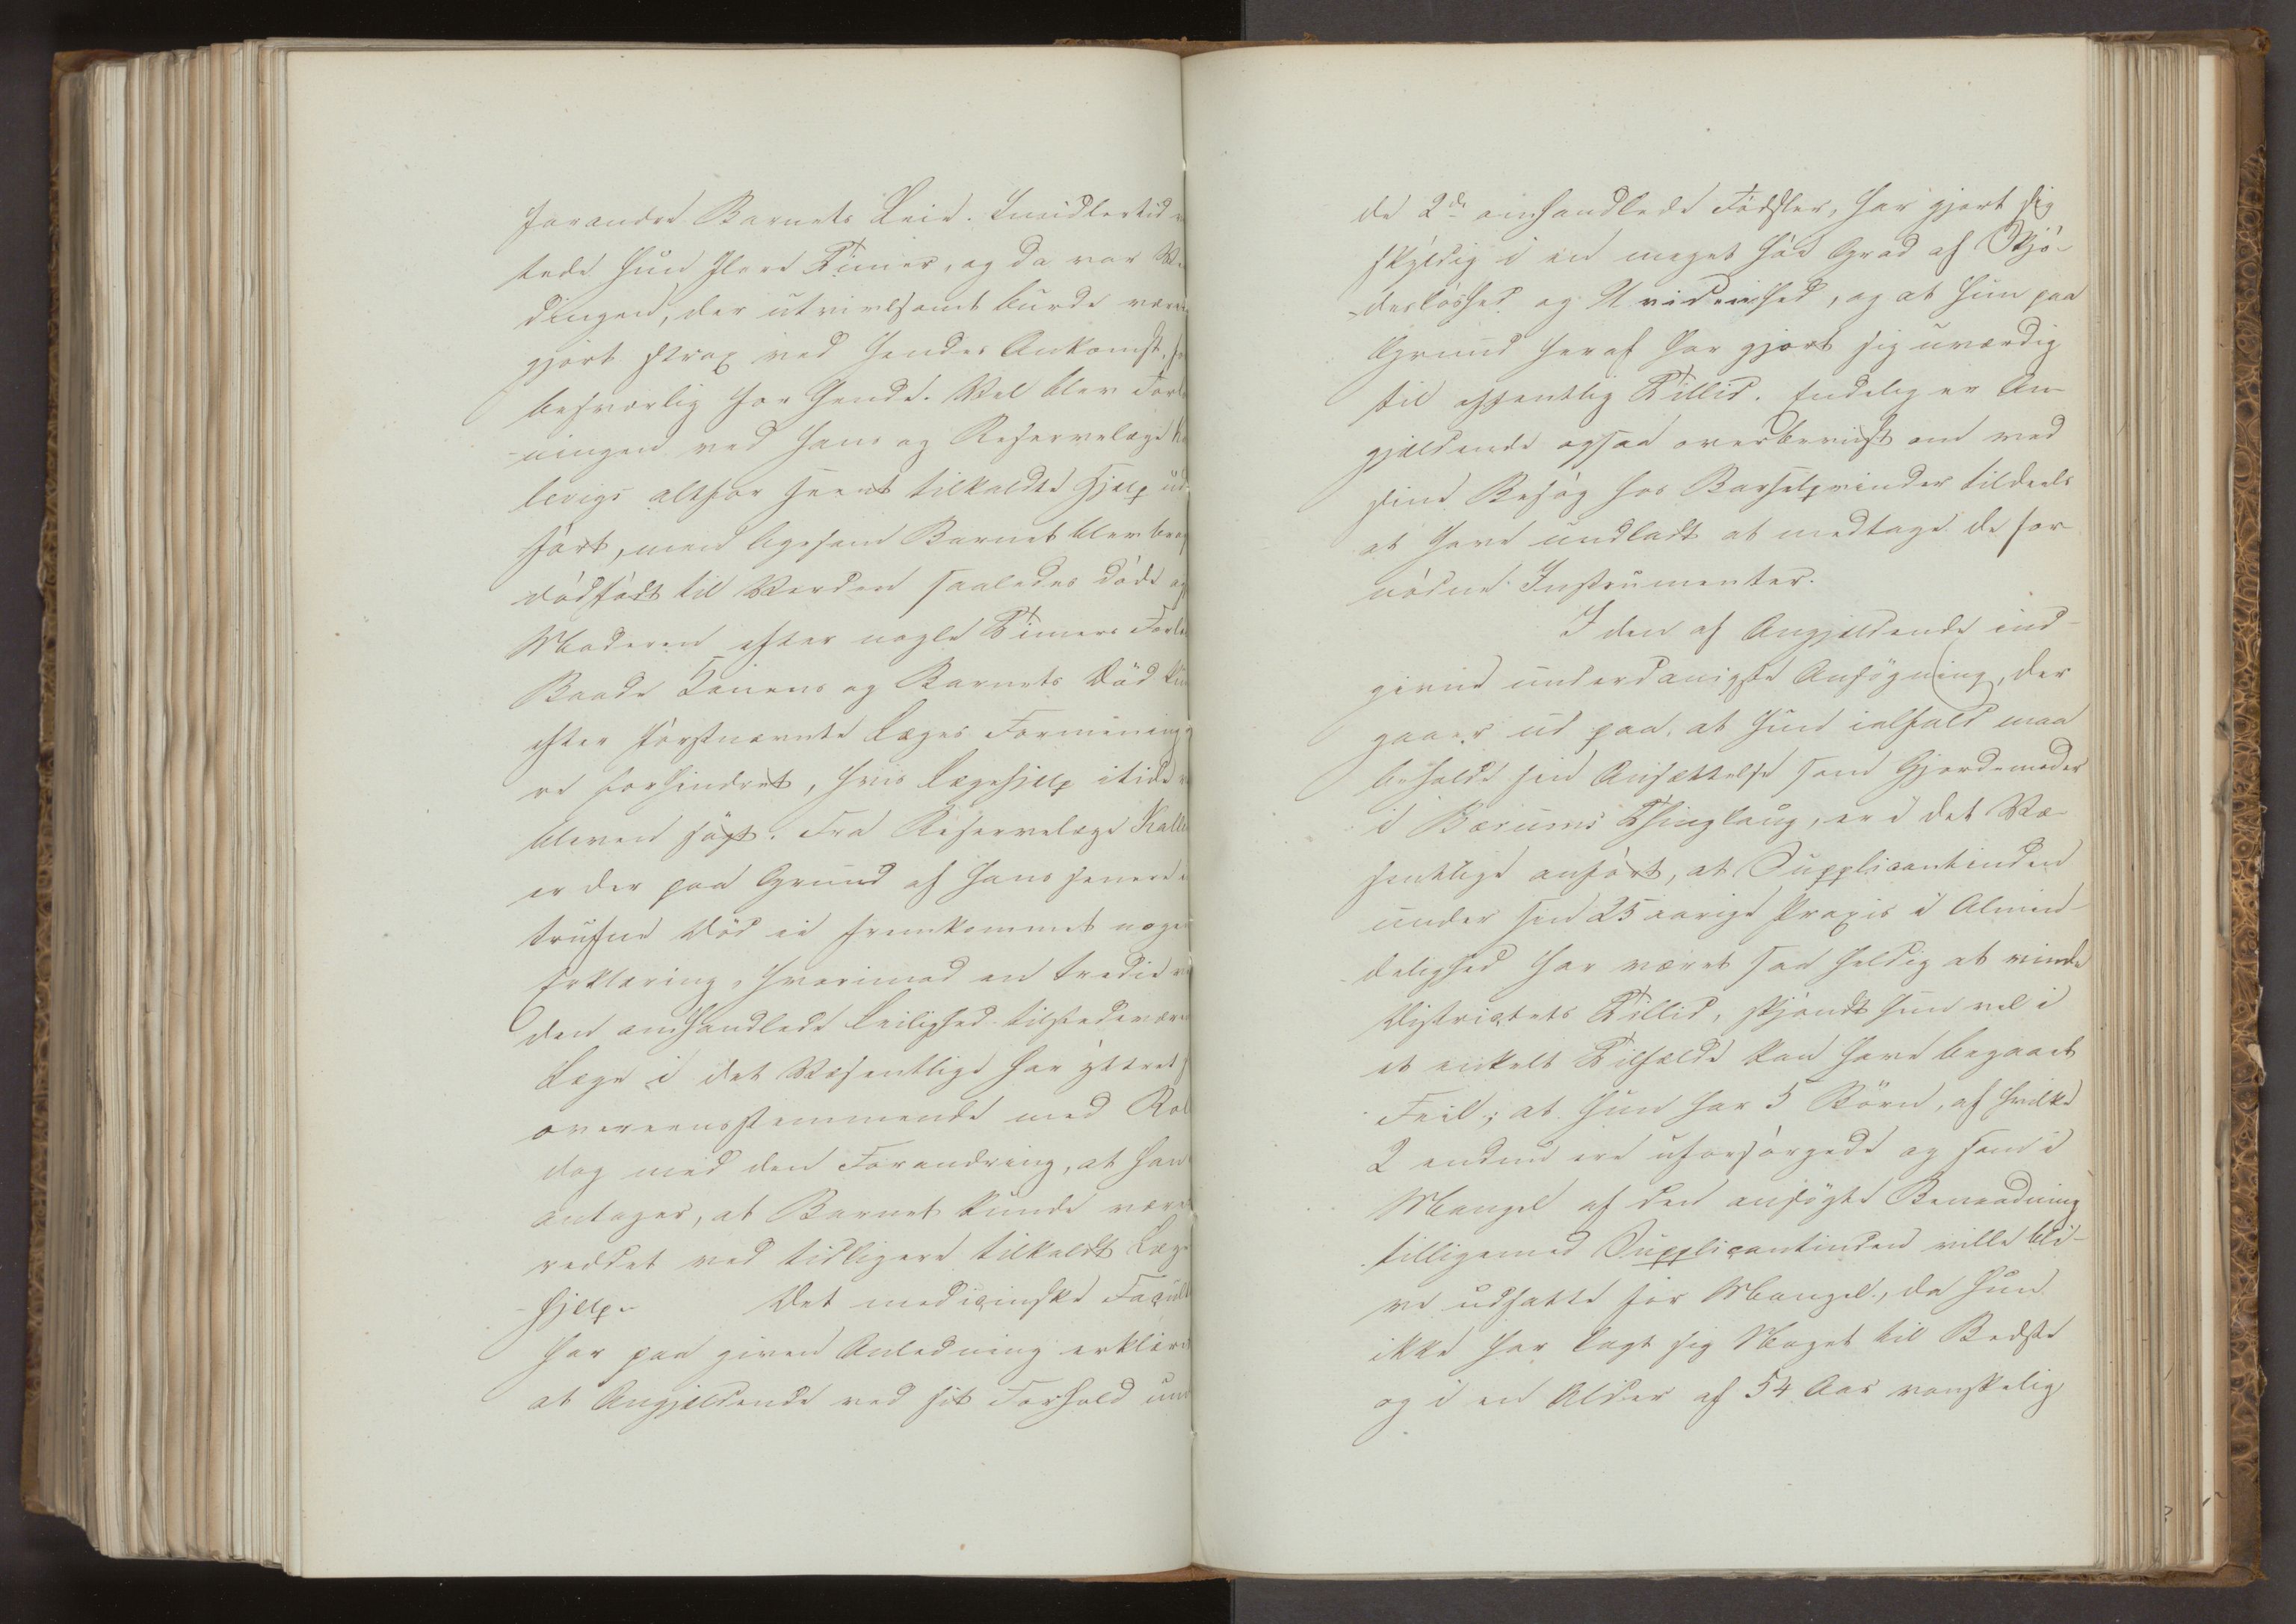 forandre Barnets Leie. Imidlertid v
tede hun flere Timer, og da var Ve
dingen, der utvivlsomt burde være
gjort strax ved hendes Ankomst, fo
besværlig for hende. Vel blev Forlø
-ningen ved hans og Reservelæge Ka
levigs altfor seent tilkaldte Hjelp ud
ført, men ligesom Barnet blev brag
dødfødt til Verden saaledes døde og
Moderen efter nogle Timers Forlø
Baade Konens og Barnets Død kun
efter førstnævnte Læges Formening v
re forhindret, hvis Lægehjelp itide v
bleven søgt. Fra Reservelæge Kalle
er der paa Grund af hans senere i
trufne Død ei fremkommet nogen
Erklæring, hvorimod en tredie ve
den omhandlede Leilighed tilstedeværen
Læge i det Væsentlige har yttret s
overeensstemmende med Rol
dog med den Forandring, at han
antager, at Barnet kunde være
reddet ved tidligere tilkaldt Læge
-hjelp. Det medicinske Facult
har paa given Anledning erklæret
at Angjeldende ved sit Forhold und
de 2de omhandlede Fødsler, har gjort sig
skyldig i en meget høi Grad af Skjø-
-desløshed og Uvidenhed, og at hun paa
Grund heraf har gjort sig uværdig
til offentlig Tillid. Endelig er An-
gjeldende ogsaa overbeviist om ved
sine Besøg hos Barselqvinder tildeels
at have undladt at medtage de for
nødne Instrumenter.
I den af Angjeldende ind-
givne underdanigste Ansøgning, der
gaaer ud paa, at hun ialfald maa
beholde sin Ansættelse som Gjordemoder
i Bærums Thinglaug, er i det Væ-
sentlige anført, at Supplicantinden
under sin 25 aarige Praxis i Almin-
-delighed har været saa heldig at vinde
Districtets Tillid, skjøndt hun vel i
et enkelt Tilfælde kan have begaaet
Feil; at hun har 5 Børn, af hvilke
2 endnu ere uforsørgede og som i
Mangel af den ansøgte Benaadning
tilligemed Supplicantinden ville bli-
ve udsatte for Mangel, da hun
ikke har lagt sig Noget til Bedste
og i en Alder af 54 Aar vanskelig